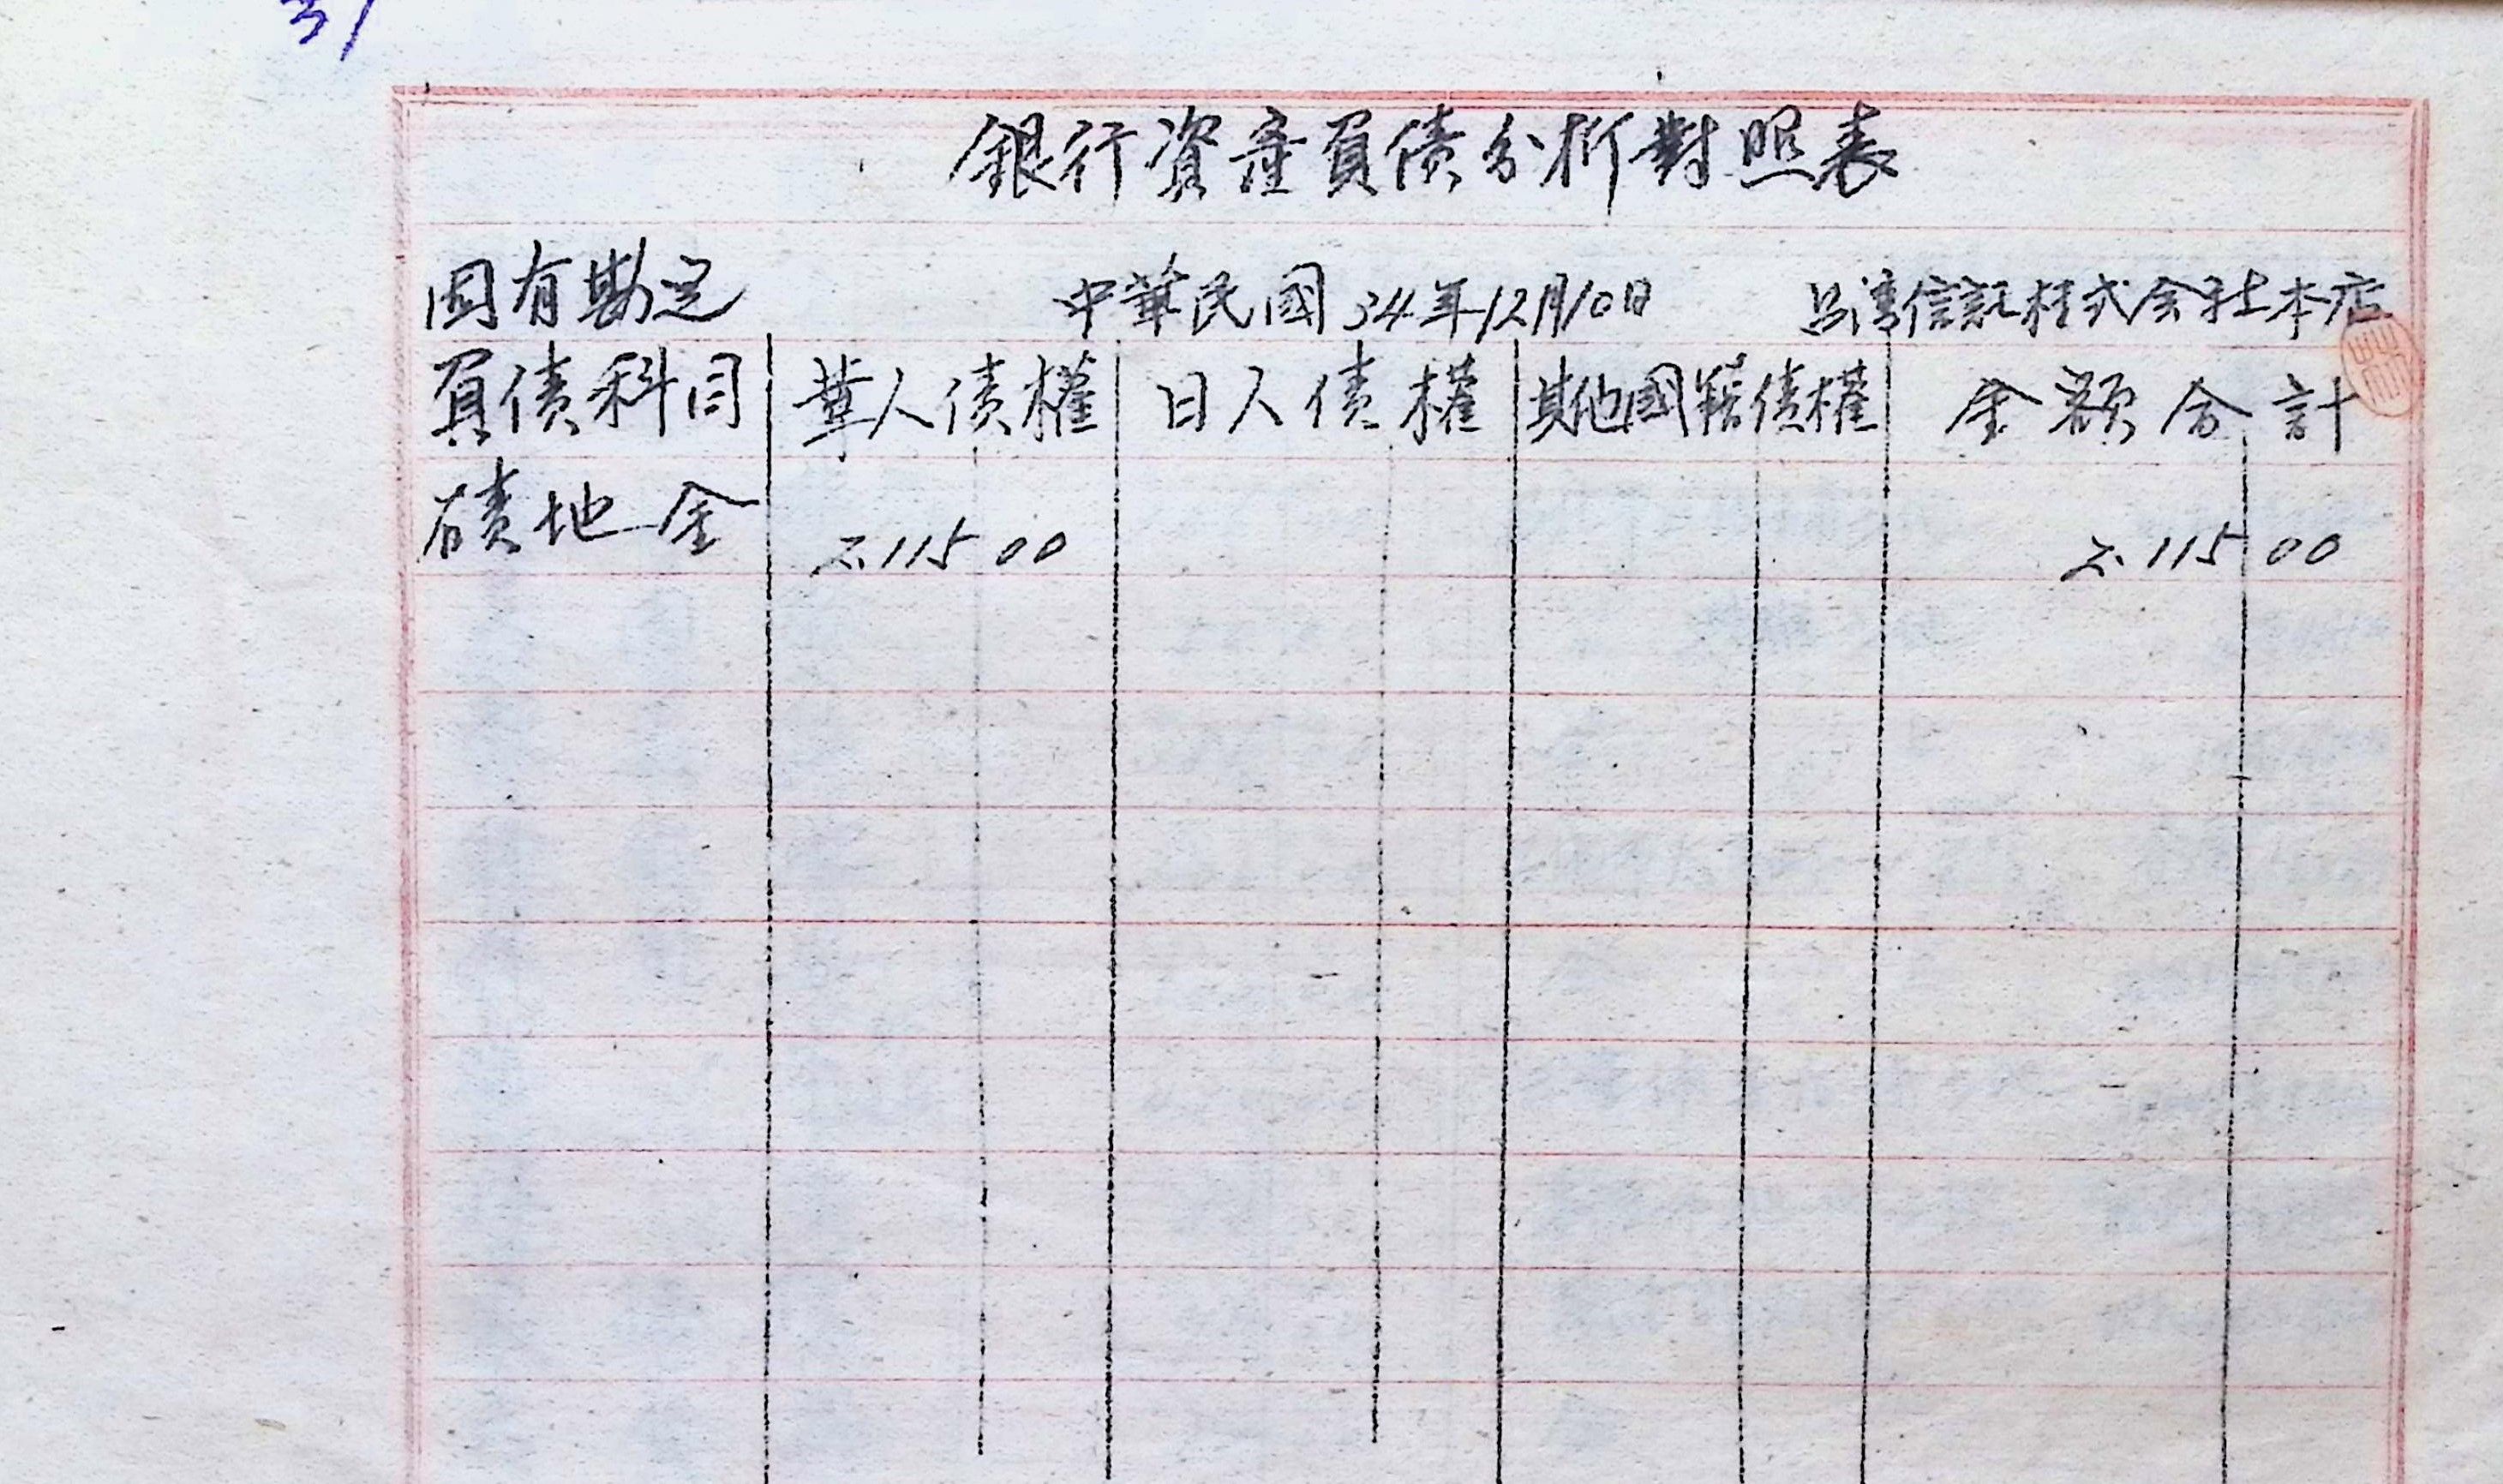 31
銀行資產負債分析對照表
固有勘定 中華民國34年12月10日 台湾信託株式会社本店
負債科目 華人債權 日人債權 其他國籍債權 金額合計
積地金 2.115 00 2.115 00